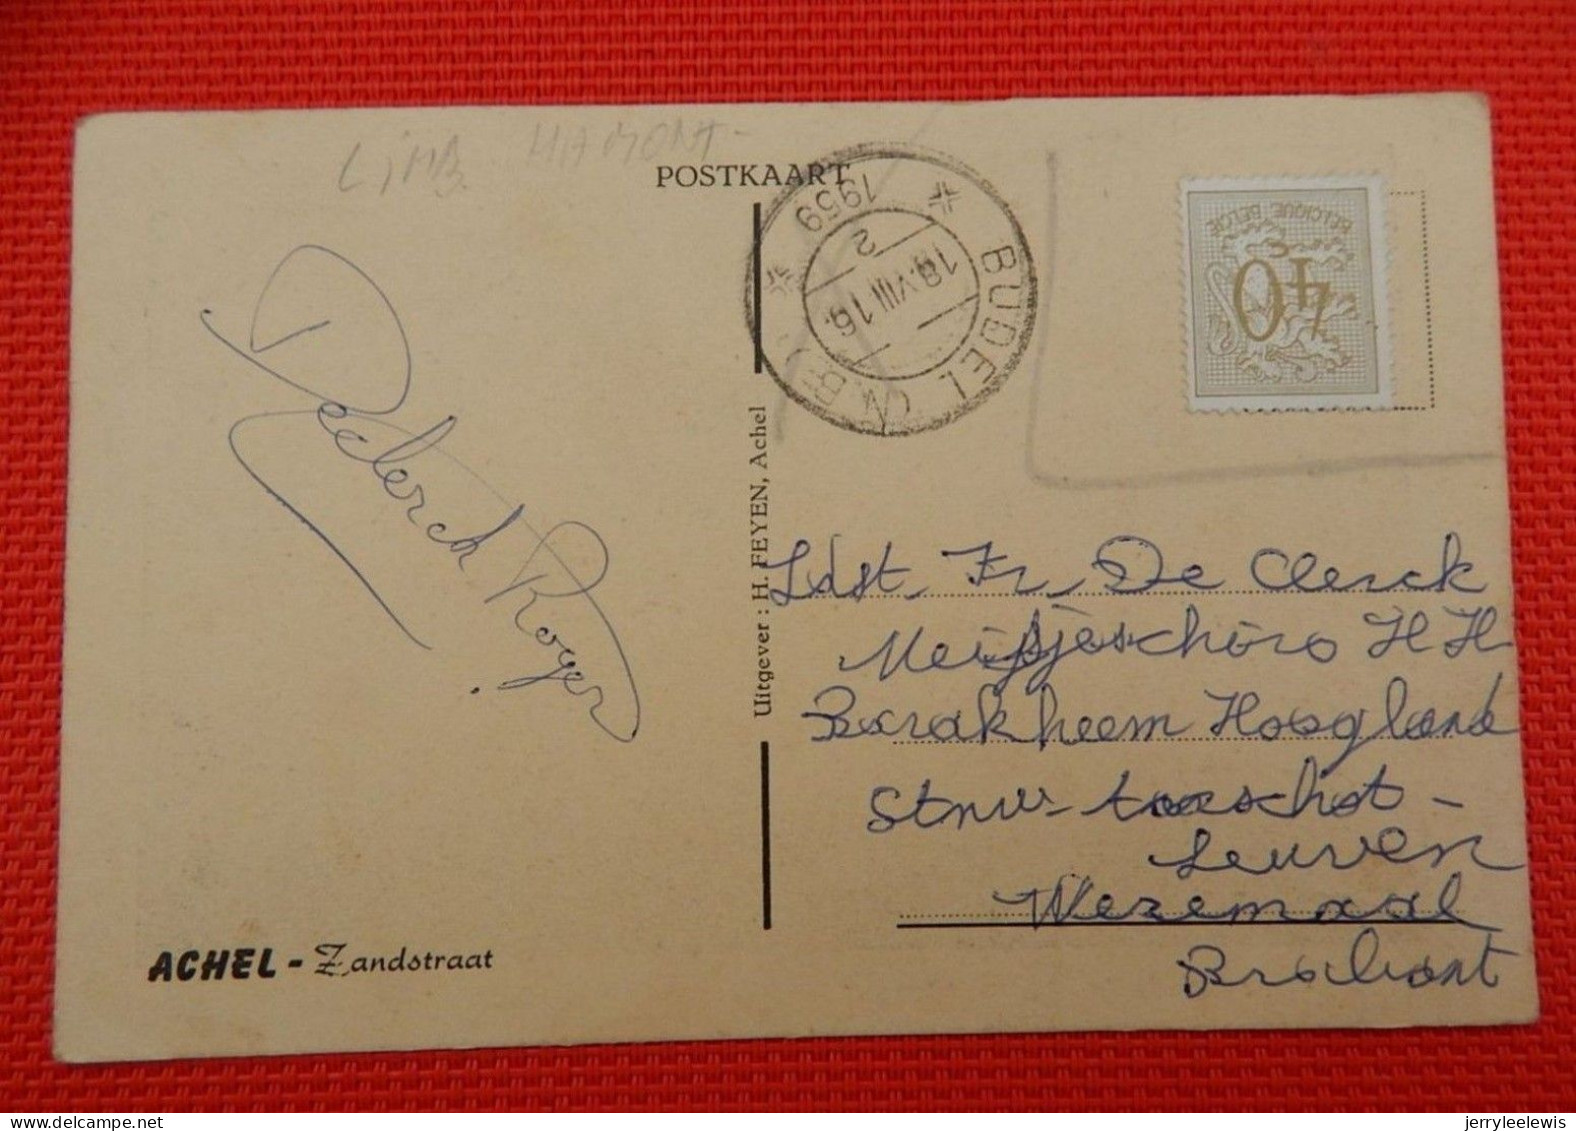 LIMB. HAMONT-
POSTKAART
BUDEL (N.B.)
1959
2
18.VIII 16.
BELGIQUE·BELGIË
40
Declerck Roger
Uitgever : H. FEYEN, Achel
Ldst. Fr. De Clerck
Meisjeschiro H H
Barakheem Hoogland
Stnw- Aarschot -
Leuven
Wezemaal
Brabant
ACHEL - Zandstraat
jerryleelewis